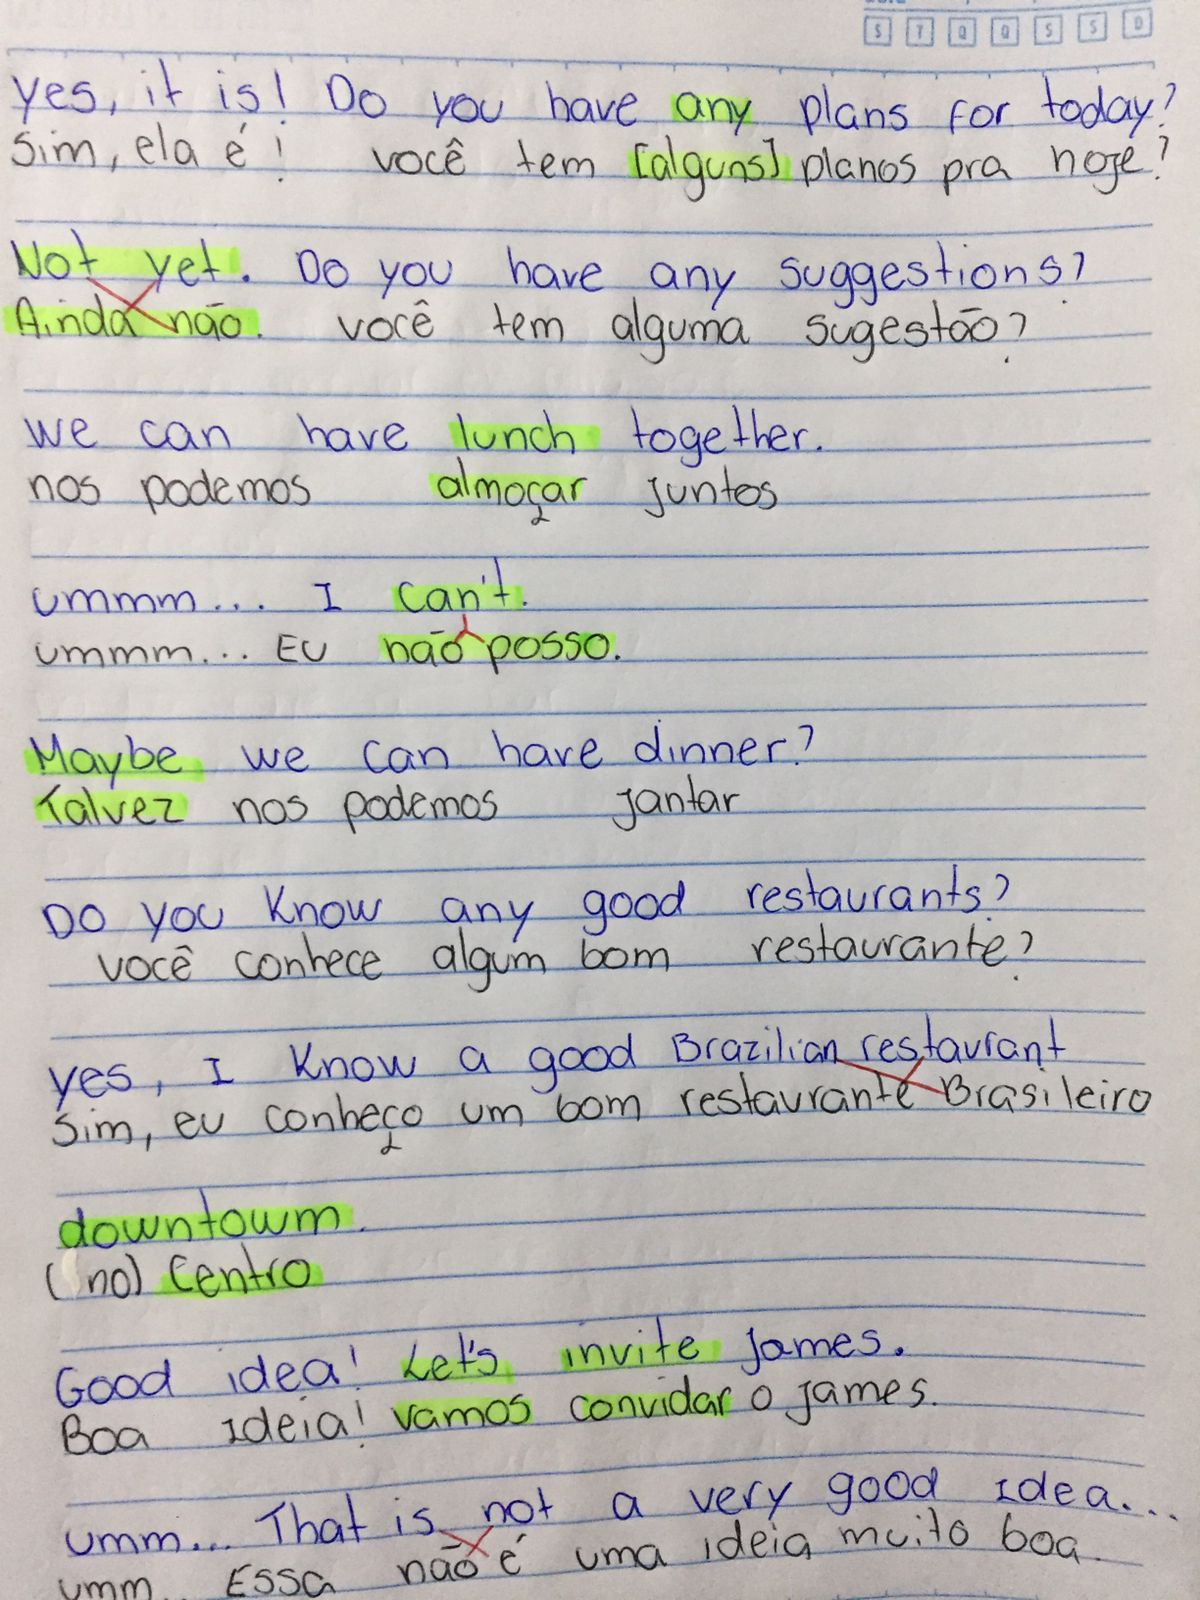 S T Q Q S S D
Yes, it is! Do you have any plans for today?
Sim, ela é! você tem [alguns] planos pra hoje?
Not yet. Do you have any suggestions?
Ainda não. você tem alguma sugestão?
we can have lunch together.
nos podemos almoçar juntos
ummm... I can't.
ummm... Eu não posso.
Maybe we can have dinner?
Talvez nos podemos jantar
Do you know any good restaurants?
você conhece algum bom restaurante?
yes, I know a good Brazilian restaurant
Sim, eu conheço um bom restaurante Brasileiro
downtowm.
(no) Centro
Good idea! Let's invite James.
Boa ideia! vamos convidar o james.
umm... That is not a very good idea...
umm.. Essa não é uma ideia muito boa.